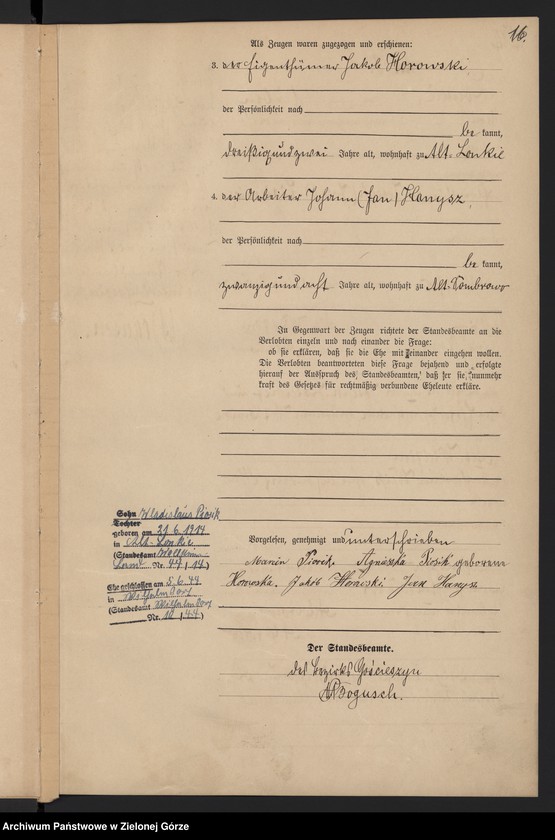 16.
Als Zeugen waren zugezogen und erschienen:
3. der Eigenthümer Jakob Horowski
der Persönlichkeit nach
be kannt,
dreißigundzwei Jahre alt, wohnhaft zu Alt-Lonkie
4. der Arbeiter Johann (Jan) Hanysz
der Persönlichkeit nach
be kannt,
zwanzigundacht Jahre alt, wohnhaft zu Alt-Dombrowo
In Gegenwart der Zeugen richtete der Standesbeamte an die
Verlobten einzeln und nach einander die Frage:
ob sie erklären, daß sie die Ehe mit einander eingehen wollen.
Die Verlobten beantworteten diese Frage bejahend und erfolgte
hierauf der Ausspruch des Standesbeamten, daß er sie nunmehr
kraft des Gesetzes für rechtmäßig verbundene Eheleute erkläre.
Vorgelesen, genehmigt und unterschrieben
Marcin Piosik. Agnieszka Piosik geborene
Horowska. Jakób Horowski Jan Hanysz
Der Standesbeamte.
des Bezirks Gościeszyn
Bogusch.
Sohn Wladislaus Piosik
Tochter
geboren am 21.6.1914
in Alt-Lonkie
(Standesamt Wollstein
Land Nr. 44/14)
Ehe geschlossen am 5.6.44
in Wilhelmsdorf
(Standesamt Wilhelmsdorf
Nr. 10/44)
Archiwum Państwowe w Zielonej Górze